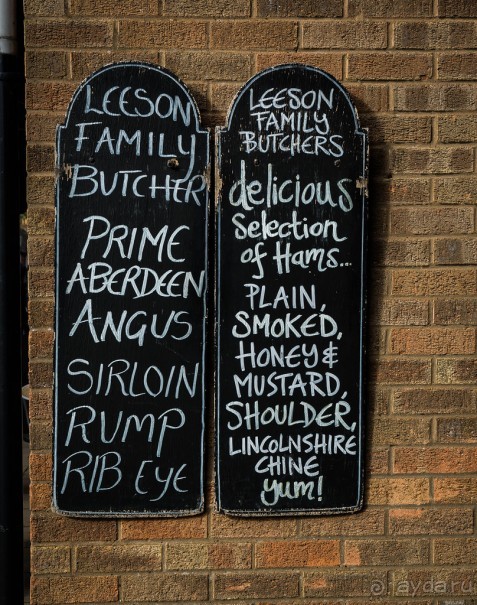 LEESON
FAMILY
BUTCHER
PRIME
ABERDEEN
ANGUS
SIRLOIN
RUMP
RIB EYE
LEESON
FAMILY
BUTCHERS
delicious
Selection
of Hams...
PLAIN,
SMOKED,
HONEY &
MUSTARD,
SHOULDER,
LINCOLNSHIRE
CHINE
yum!
fayda.ru